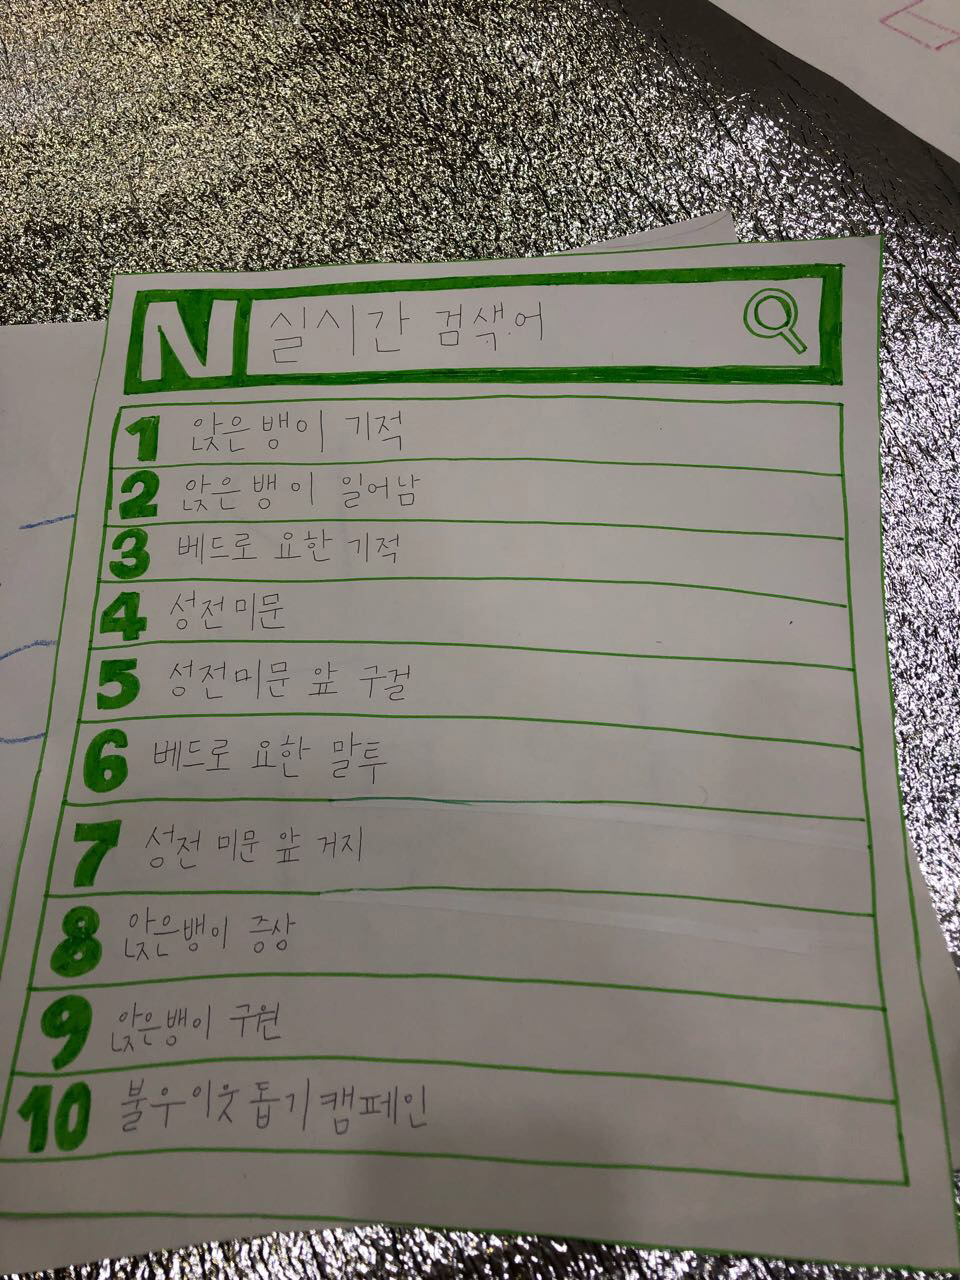 N 실시간 검색어
1 앉은뱅이 기적
2 앉은뱅이 일어남
3 베드로 요한 기적
4 성전미문
5 성전미문 앞 구걸
6 베드로 요한 말투
7 성전 미문 앞 거지
8 앉은뱅이 증상
9 앉은뱅이 구원
10 불우이웃돕기캠페인